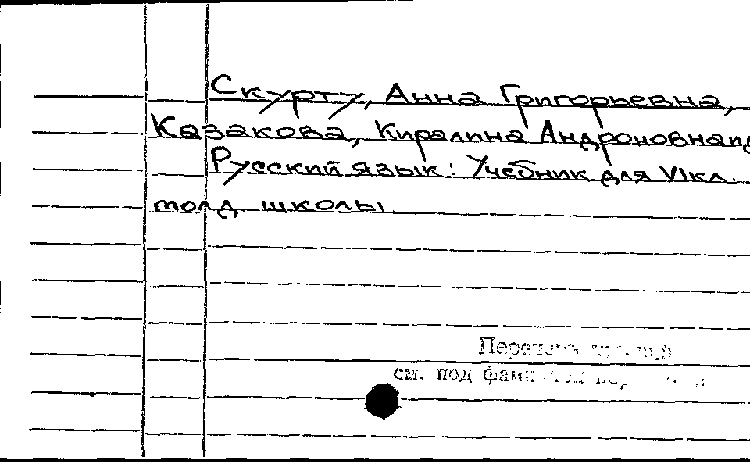 Скурту, Анна Григорьевна,
Казакова, Киралина Андроновна
Русский язык: Учебник для VIкл.
молд школы
см. под